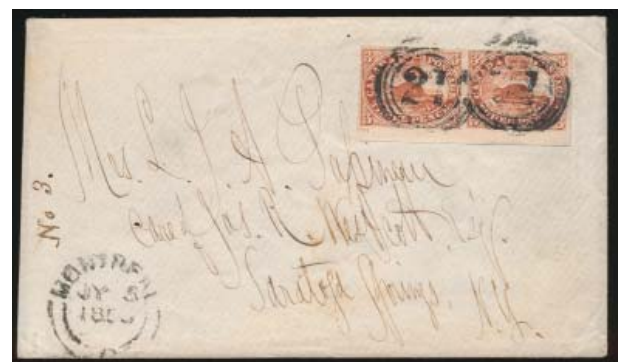 21
21
Mrs. L. J. A. Papineau
care of Jas. R. Westcott, Esq.
Saratoga Springs. N.Y.
No 3.
MONTREAL
JY 5